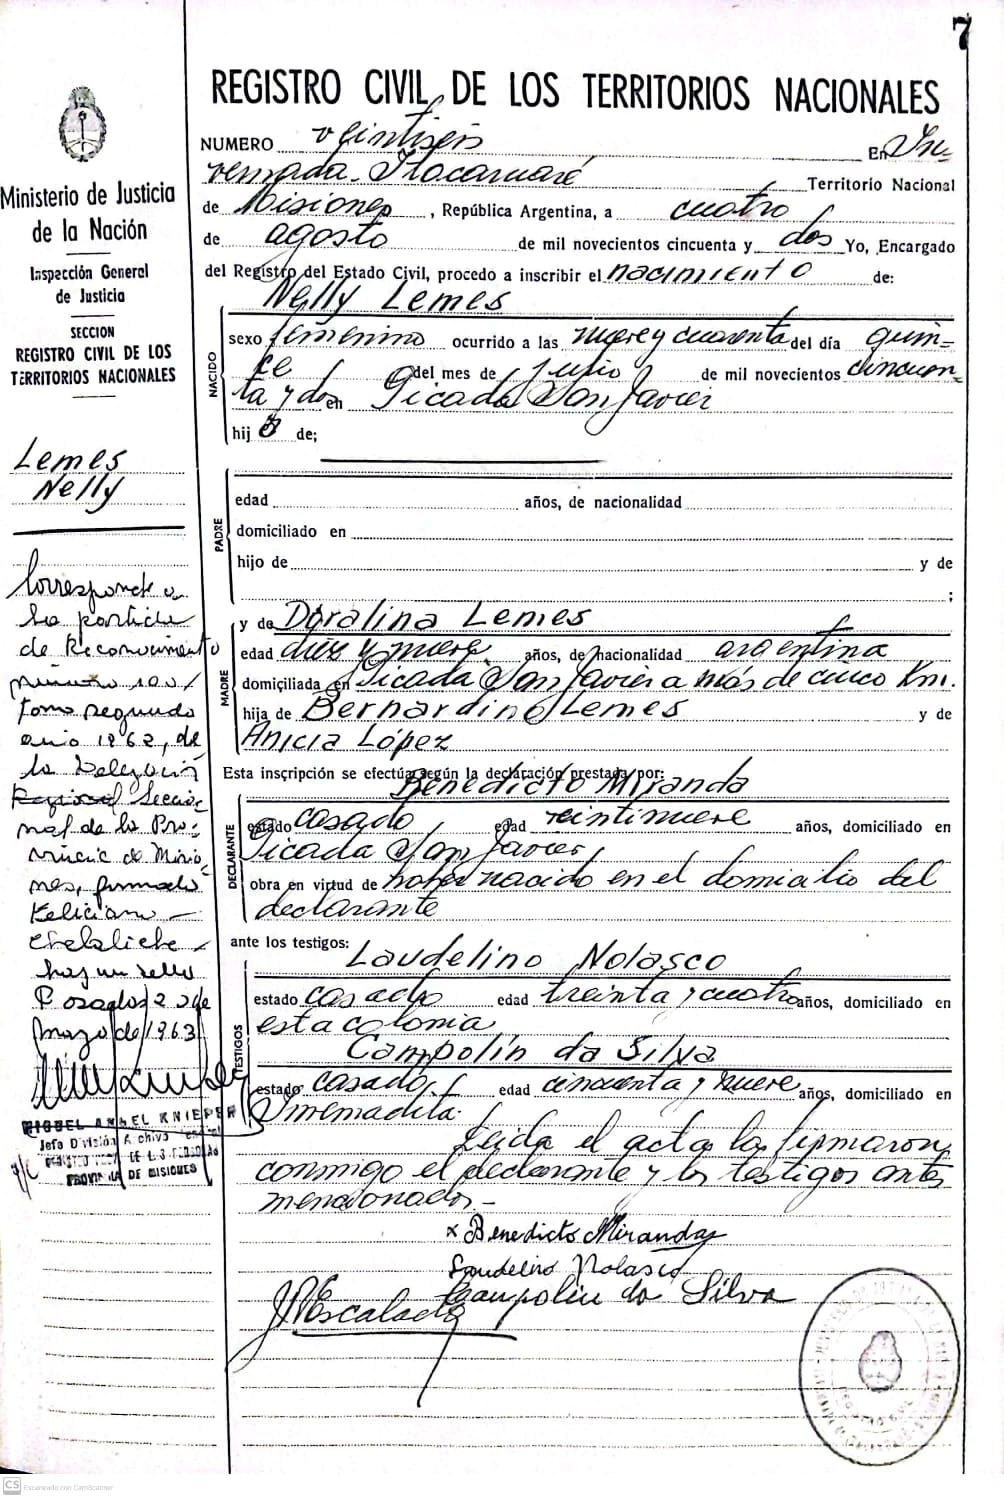 7
REGISTRO CIVIL DE LOS TERRITORIOS NACIONALES
NUMERO veintiséis En Inv
vernada-Itacaruaré Territorio Nacional
de Misiones, República Argentina, a cuatro
de agosto de mil novecientos cincuenta y dos Yo, Encargado
del Registro del Estado Civil, procedo a inscribir el nacimiento de:
Nelly Lemes
NACIDO
sexo femenino ocurrido a las nueve y cuarenta del día quin-
ce del mes de julio de mil novecientos cincuen-
ta y dos en Picada San Javier
hij a de;
PADRE
edad años, de nacionalidad
domiciliado en
hijo de y de
;
MADRE
y de Doralina Lemes
edad diez y nueve años, de nacionalidad argentina
domiciliada en Picada San Javier a más de cinco Km.
hija de Bernardino Lemes y de
Anicia López
Esta inscripción se efectúa según la declaración prestada por:
Benedicto Miranda
DECLARANTE
estado casado edad veintinueve años, domiciliado en
Picada San Javier
obra en virtud de haber nacido en el domicilio del
declarante
ante los testigos:
Laudelino Nolasco
TESTIGOS
estado casado edad treinta y cuatro años, domiciliado en
esta colonia
Campolín da Silva
estado casado edad cincuenta y nueve años, domiciliado en
Invernadita.
Leida el acta la firmaron
conmigo el declarante y los testigos antes
mencionados.-
x Benedicto Miranda
Laudelino Nolasco
Campolin da Silva
JPEscalada
Ministerio de Justicia
de la Nación
Inspección General
de Justicia
SECCION
REGISTRO CIVIL DE LOS
TERRITORIOS NACIONALES
Lemes
Nelly
Corresponde a
la partida
de Reconocimiento
número 100
tomo segundo
año 1962, de
la Delegación
Regional Seccio
nal de la Pro-
vincia de Misio
nes, firmado
Feliciano -
Chelaliche -
hay un sello
Posadas, 2 de
Marzo de 1963
MIGUEL ANGEL KNIEPER
Jefe División Archivo General
REGISTRO PROV. DE LAS PERSONAS
PROVINCIA DE MISIONES
CS Escaneado con CamScanner